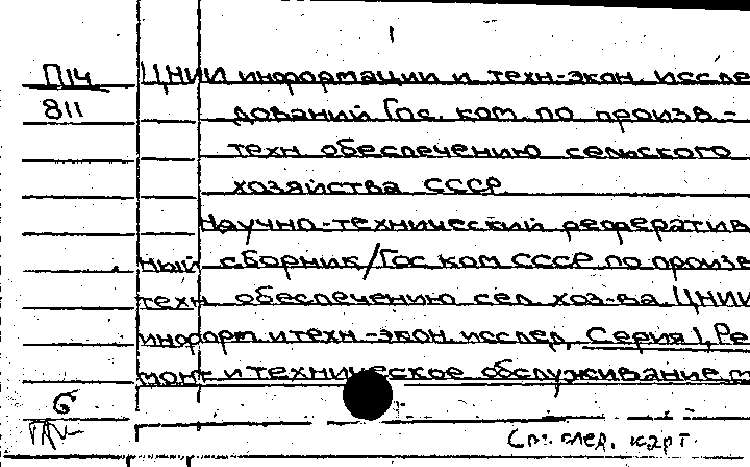 1
П14
811
ЦНИИ информации и техн-экон. иссле
дований Гос. ком. по произв.-
техн обеспечению сельского
хозяйства СССР
Научно-технический реферативный
ный сборник/Гос ком СССР по произв
техн обеспечению сел хоз-ва ЦНИИ
информ. и техн.-экон. исслед. Серия 1, Ре
монт и техническое обслуживание м
6
См. след. карт.